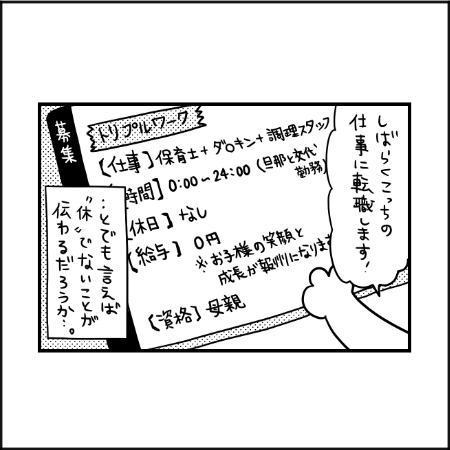 しばらくこっちの
仕事に転職します！
募集
トリプルワーク
【仕事】保育士+ダ○キン+調理スタッフ
【時間】0:00～24:00（旦那と交代
勤務）
【休日】なし
【給与】0円
※お子様の笑顔と
成長が報酬になります
【資格】母親
…とでも言えば
“休”でないことが
伝わるだろうか…。